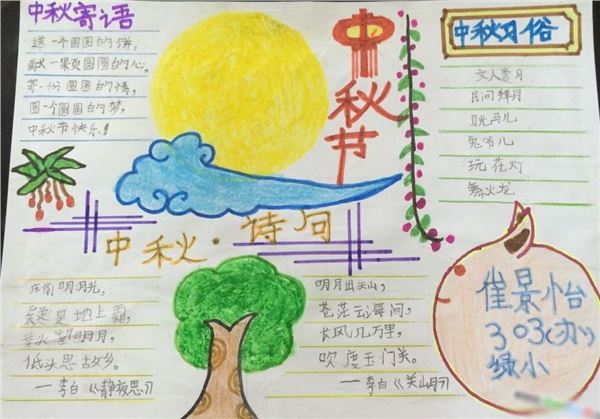 中秋寄语
送一个圆圆的饼,
献一颗圆圆的心。
等一份圆圆的情,
圆一个圆圆的梦,
中秋节快乐!
中秋节
中秋习俗
文人赏月
民间拜月
月光马儿
兔爷儿
玩花灯
舞火龙
中秋·诗词
床前明月光,
疑是地上霜,
举头望明月,
低头思故乡。
—李白《静夜思》
明月出天山,
苍茫云海间,
长风几万里,
吹度玉门关。
—李白《关山月》
崔景怡
303(办)
绿小